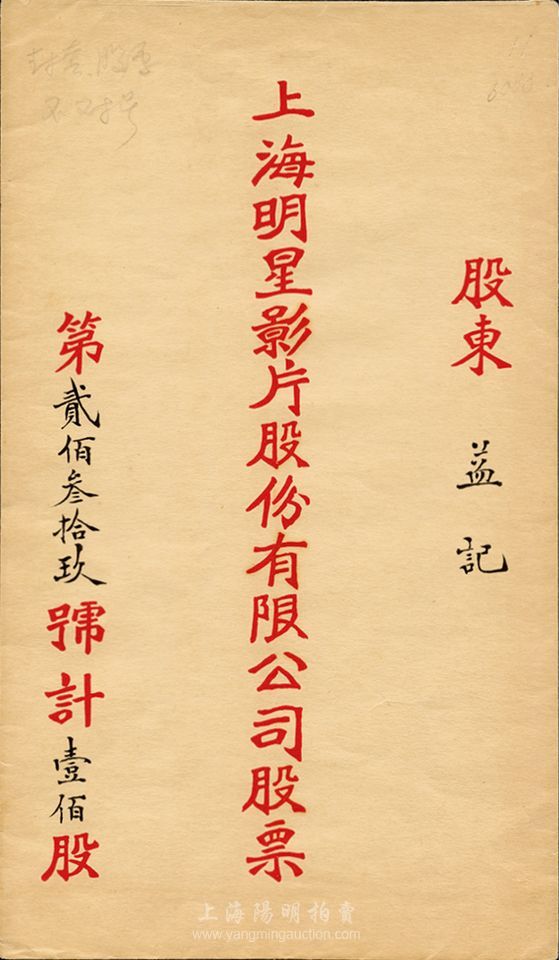 股東 益記
上海明星影片股份有限公司股票
第貳佰叁拾玖號計壹佰股
封套、股票
不对号
上海陽明拍賣
www.yangmingauction.com